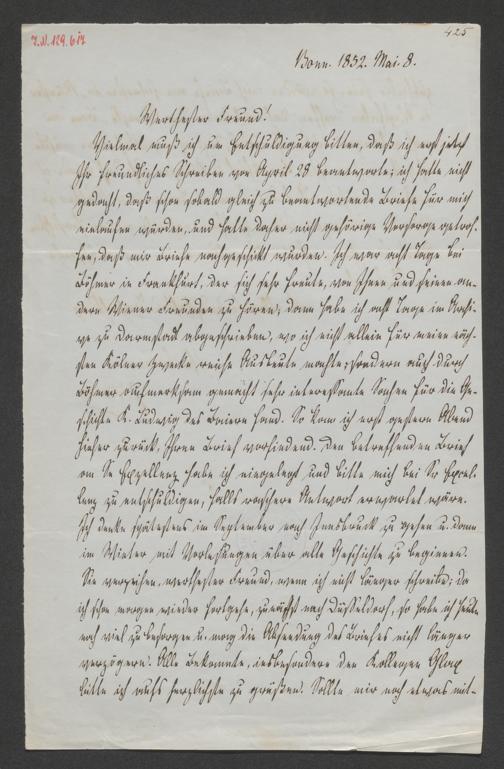 I.N. 129.617
425
Bonn. 1852. Mai. 8.
Werthester Freund!
Vielmal muß ich um Entschuldigung bitten, daß ich erst jetzt
Ihr freundliches Schreiben von April 28 beantworte; ich hatte nicht
gedacht, daß schon sobald gleich zu beantwortende Briefe für mich
einlaufen würden, und hatte daher nicht gehörige Vorsorge getrof-
fen, daß mir Briefe nachgeschickt wurden. Ich war acht Tage bei
Böhmer in Frankfurt, der sich sehr freute, von Ihnen und seinen an-
dern Wiener Freunden zu hören, dann habe ich acht Tage im Archi-
ve zu Darmstadt abgeschrieben, wo ich nicht allein für meine näch-
sten Kölner Zwecke reiche Ausbeute machte, sondern auch durch
Böhmer aufmerksam gemacht sehr interessante Sachen für die Ge-
schichte K. Ludwig des Baiern fand. So kam ich erst gestern Abend
hieher zurück, Ihren Brief vorfindend. Den betreffenden Brief
an Se Exzellenz habe ich eingelegt und bitte mich bei Sr Exzel-
lenz zu entschuldigen, falls raschere Antwort erwartet wäre.
Ich denke spätestens im September nach Innsbruck zu gehen u. dann
im Winter mit Vorlesungen über alte Geschichte zu beginnen.
Sie verzeihen, werthester Freund, wenn ich nicht länger schreibe; da
ich schon morgen wieder fortgehe, zunächst nach Düsseldorf, so habe ich heute
noch viel zu besorgen u. mag die Absendung des Briefes nicht länger
verzögern. Alle Bekannte, insbesondere den Kollegen Glax
bitte ich aufs herzlichste zu grüßen. Sollte mir noch etwas mit-